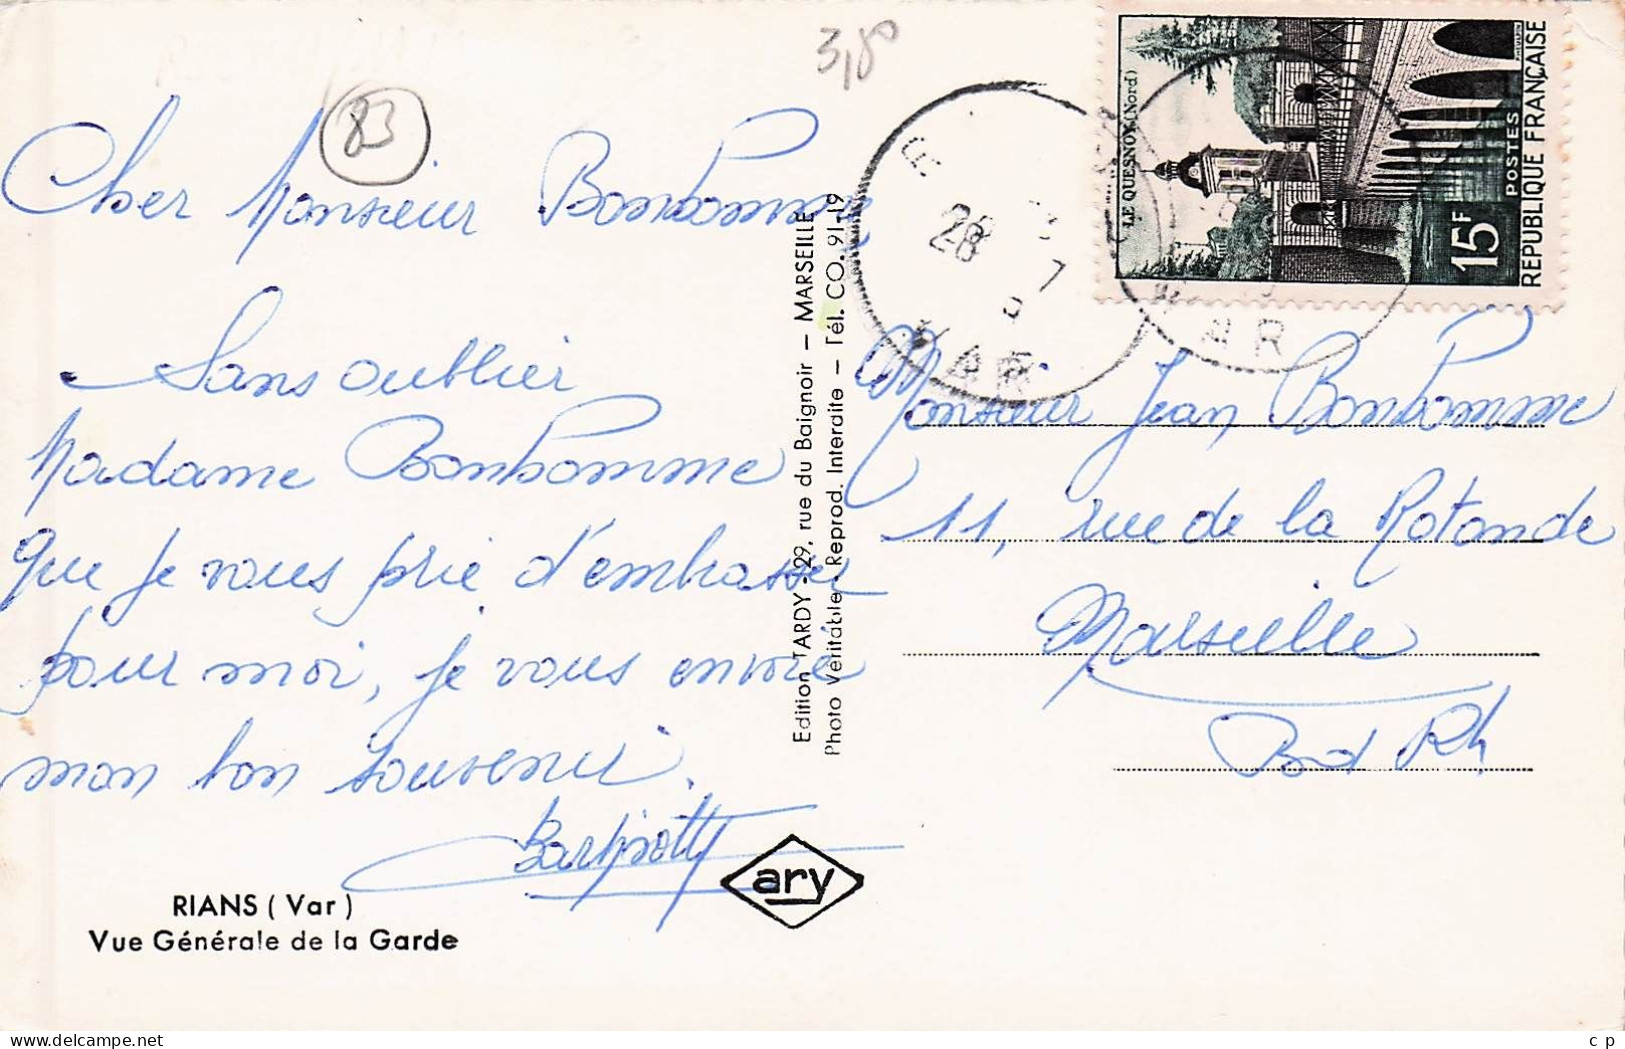 3,80
83
Cher Monsieur Bonbomme
Sans oublier
Madame Bonbomme
que je vous prie d'embrasser
pour moi, je vous envoie
mon bon souvenir.
RIANS ( Var )
Vue Générale de la Garde
ary
Edition TARDY - 29, rue du Baignoir - MARSEILLE
Photo Véritable - Reprod. Interdite - Tél. CO. 91-19
28 7
VAR
VAR
LE QUESNOY (Nord)
15F
POSTES
REPUBLIQUE FRANÇAISE
Monsieur Jean Bonbomme
11, rue de la Rotonde
Marseille
Bd Rh
delhostesteam.com
c p